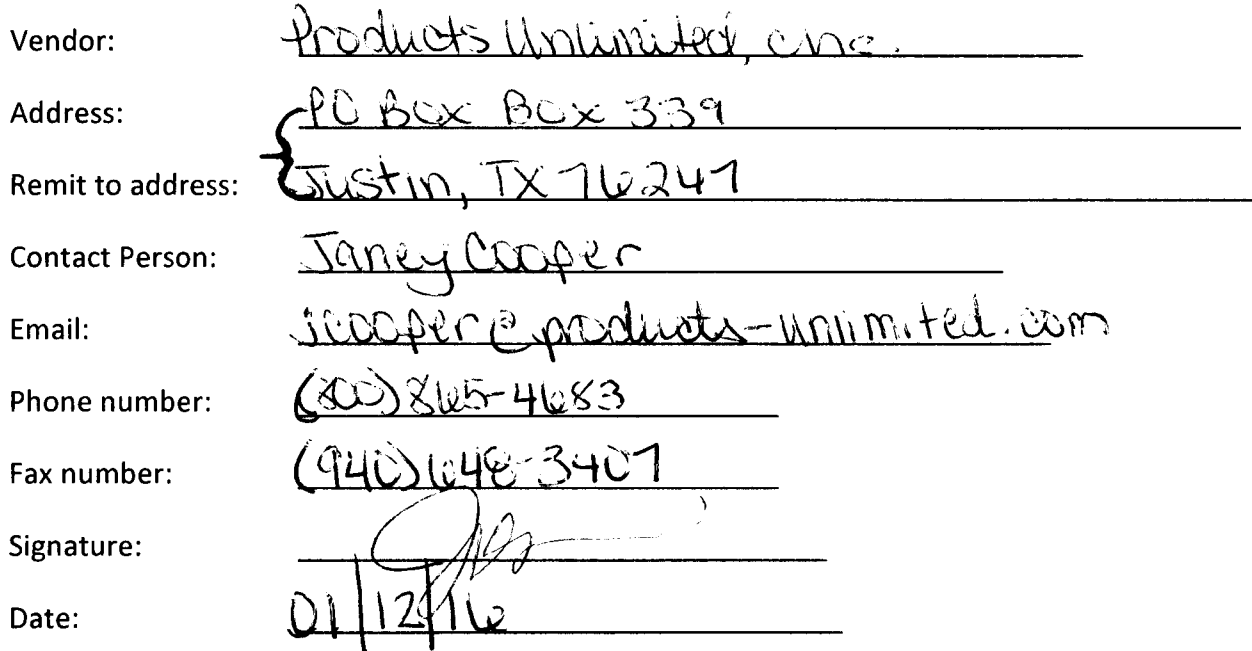 Vendor: Products Unlimited, Inc.
Address: PO Box Box 339
Remit to address: Justin, TX 76247
Contact Person: Janey Cooper
Email: jcooper@products-unlimited.com
Phone number: (800) 865-4683
Fax number: (940) 648-3407
Signature:
Date: 01/12/16